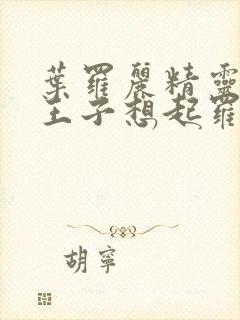 葉羅麗精靈
王子想起羅
胡寧